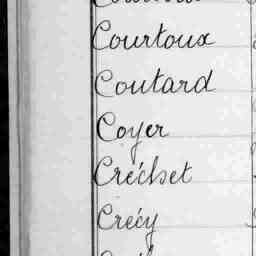 Courtoux
Coutard
Coyer
Créchet
Crécy